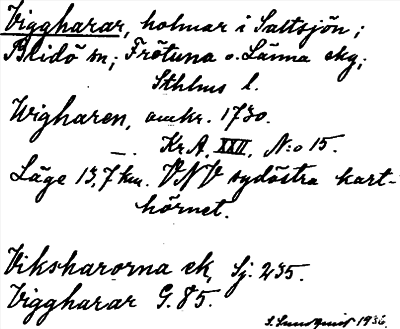 Viggharar, holmar i Saltsjön;
Blidö sn; Frötuna o. Länna skg;
Sthlms l.
Wigharen, omkr. 1730.
—. Kr.A. XXII, N:o 15.
Läge 13,7 km. VNV sydöstra kart-
hörnet.
Viksharorna ek, Sj. 235.
Viggharar G. 85.
S. Sundqvist 1936.